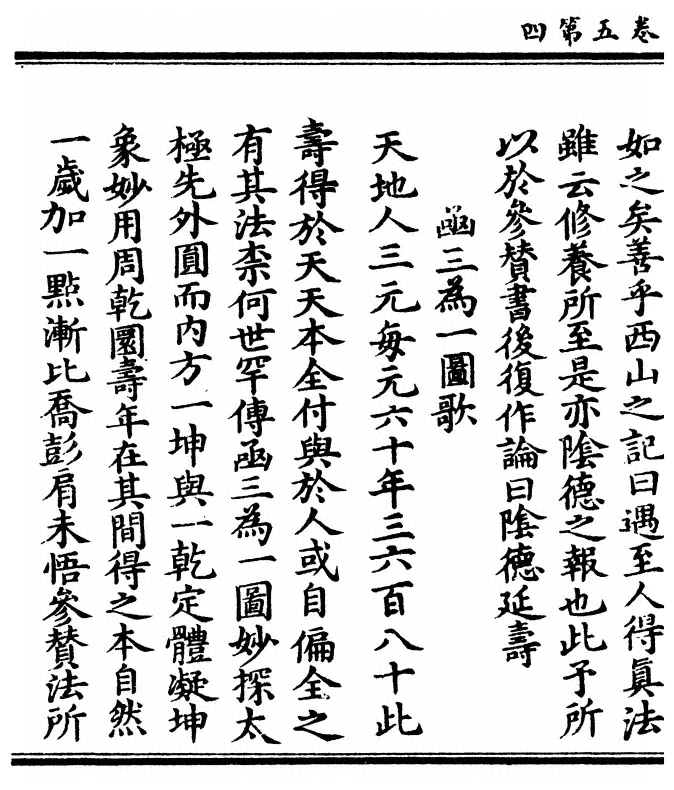 卷五第四
如之矣善乎西山之記曰遇至人得眞法
雖云修養所至是亦陰德之報也此予所
以於參贊書後復作論曰陰德延壽
函三為一圖歌
天地人三元每元六十年三六百八十此
壽得於天天本全付與於人或自偏全之
有其法柰何世罕傳函三為一圖妙探太
極先外圓而內方一坤與一乾定體凝坤
象妙用周乾圜壽年在其間得之本自然
一歲加一點漸比喬彭肩未悟參贊法所